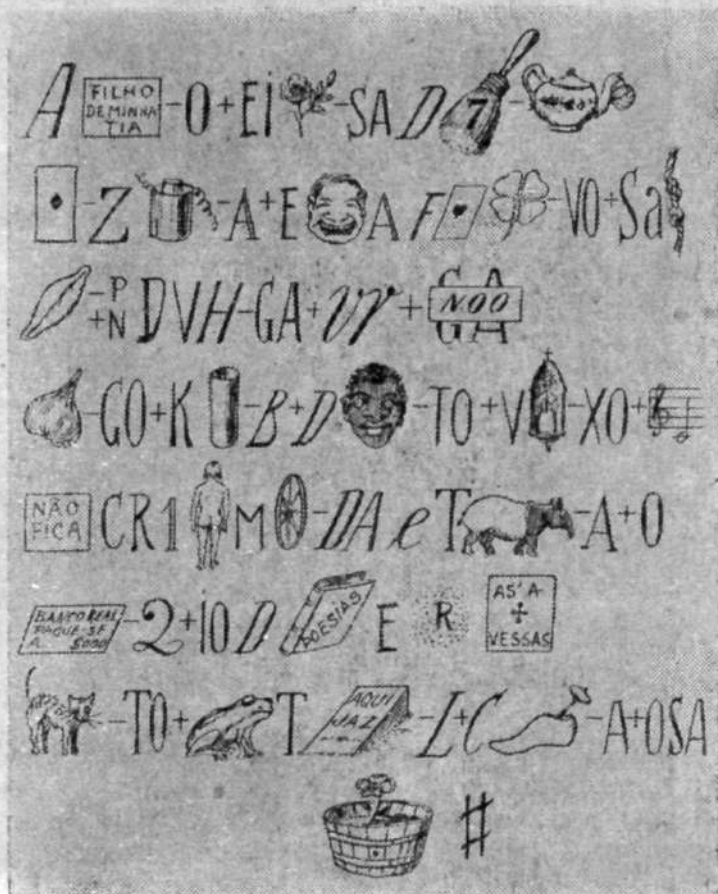 A FILHO DE MINHA TIA -O+Ei -SA D 7 -
-Z -A+E A F -VO+Sa
-P +N DVH-GA+vr+GA N.00
-GO+K -B+D -TO+V -XO+
NÃO FICA CR1 M -DA e T -A+O
BANCO REAL PAGUE-SE A 5000 -2+10 D POESIAS E R AS' A- + VESSAS
-TO+ T AQUI JAZ -L+C -A+OSA
#